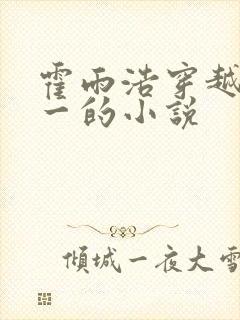 霍雨浩穿越
一的小說
傾城一夜大雪